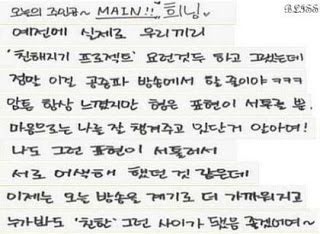 BLISS
오늘의 주인공~ MAIN!! 희님
예전에 실제로 우리끼리
'친해지기 프로젝트' 요런것두 하고 그랬는데
정말 이걸 공중파 방송에서 할 줄이야 ㅋㅋㅋ
암튼 항상 느꼈지만 형은 표현이 서툴 뿐.
마음으로는 나를 잘 챙겨주고 있단거 알아여!
나도 그런 표현이 서툴러서
서로 어색해 했던 것 같은데
이제는 오늘 방송을 계기로 더 가까워지고
누가봐도 '친한' 그런 사이가 됐음 좋겠어여~